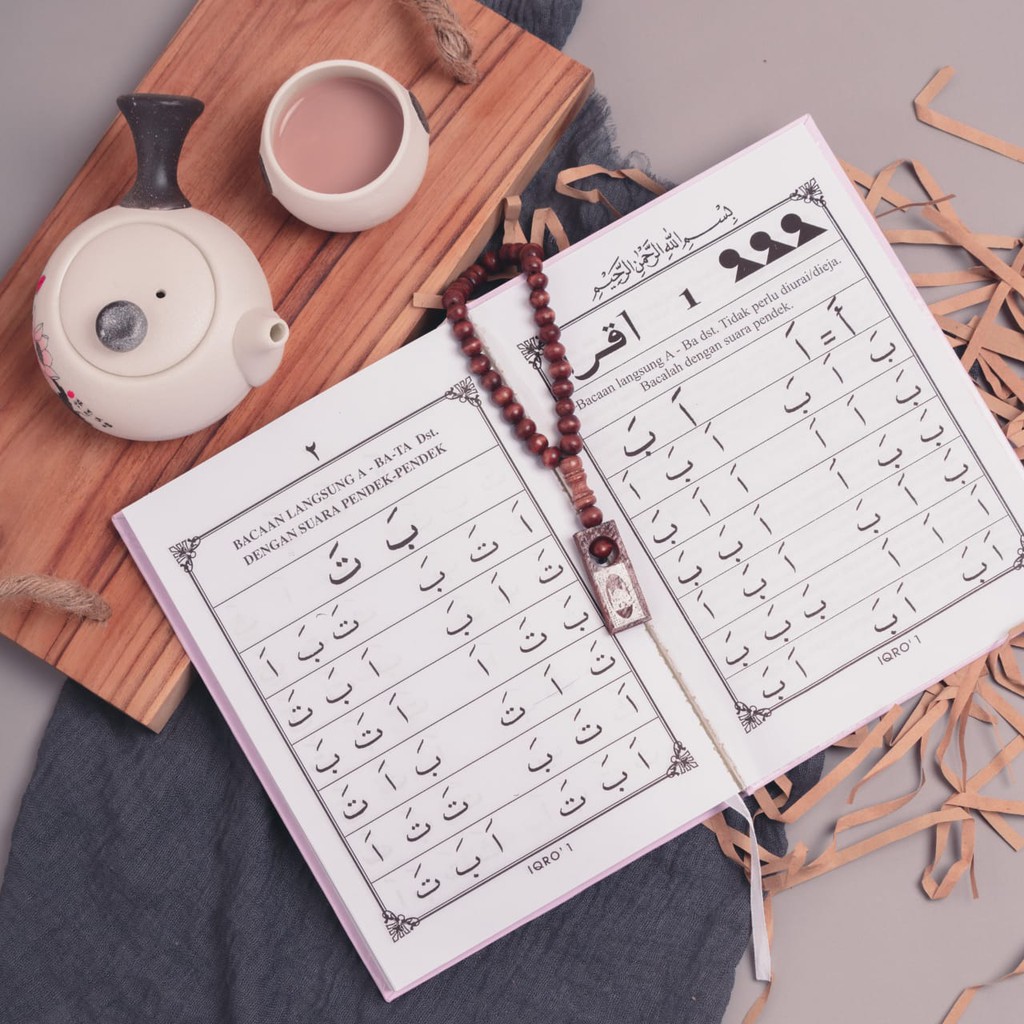 بِسْمِ اللَّهِ الرَّحْمَنِ الرَّحِيمِ
اقر 1
Bacaan langsung A - Ba dst. Tidak perlu diurai/dieja.
Bacalah dengan suara pendek.
أَ = اَ اَ بَ
بَ اَ بَ اَ بَ اَ
بَ اَ اَ اَ اَ بَ
بَ بَ اَ اَ بَ بَ
بَ اَ بَ اَ بَ اَ
اَ اَ اَ بَ بَ بَ
اَ بَ اَ بَ اَ بَ
IQRO' 1
٢
BACAAN LANGSUNG A - BA-TA Dst.
DENGAN SUARA PENDEK-PENDEK
بَ تَ
اَ تَ بَ تَ بَ اَ
تَ اَ بَ اَ بَ تَ
بَ تَ اَ اَ تَ بَ
تَ اَ تَ بَ اَ تَ
اَ تَ بَ تَ تَ اَ
اَ بَ تَ اَ بَ تَ
IQRO' 1